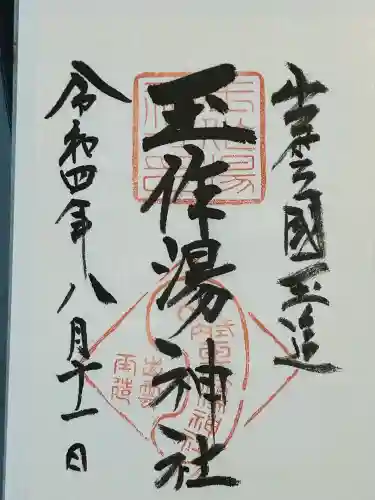 出雲國玉造
玉作湯神社
令和四年八月十一日
出雲
玉造